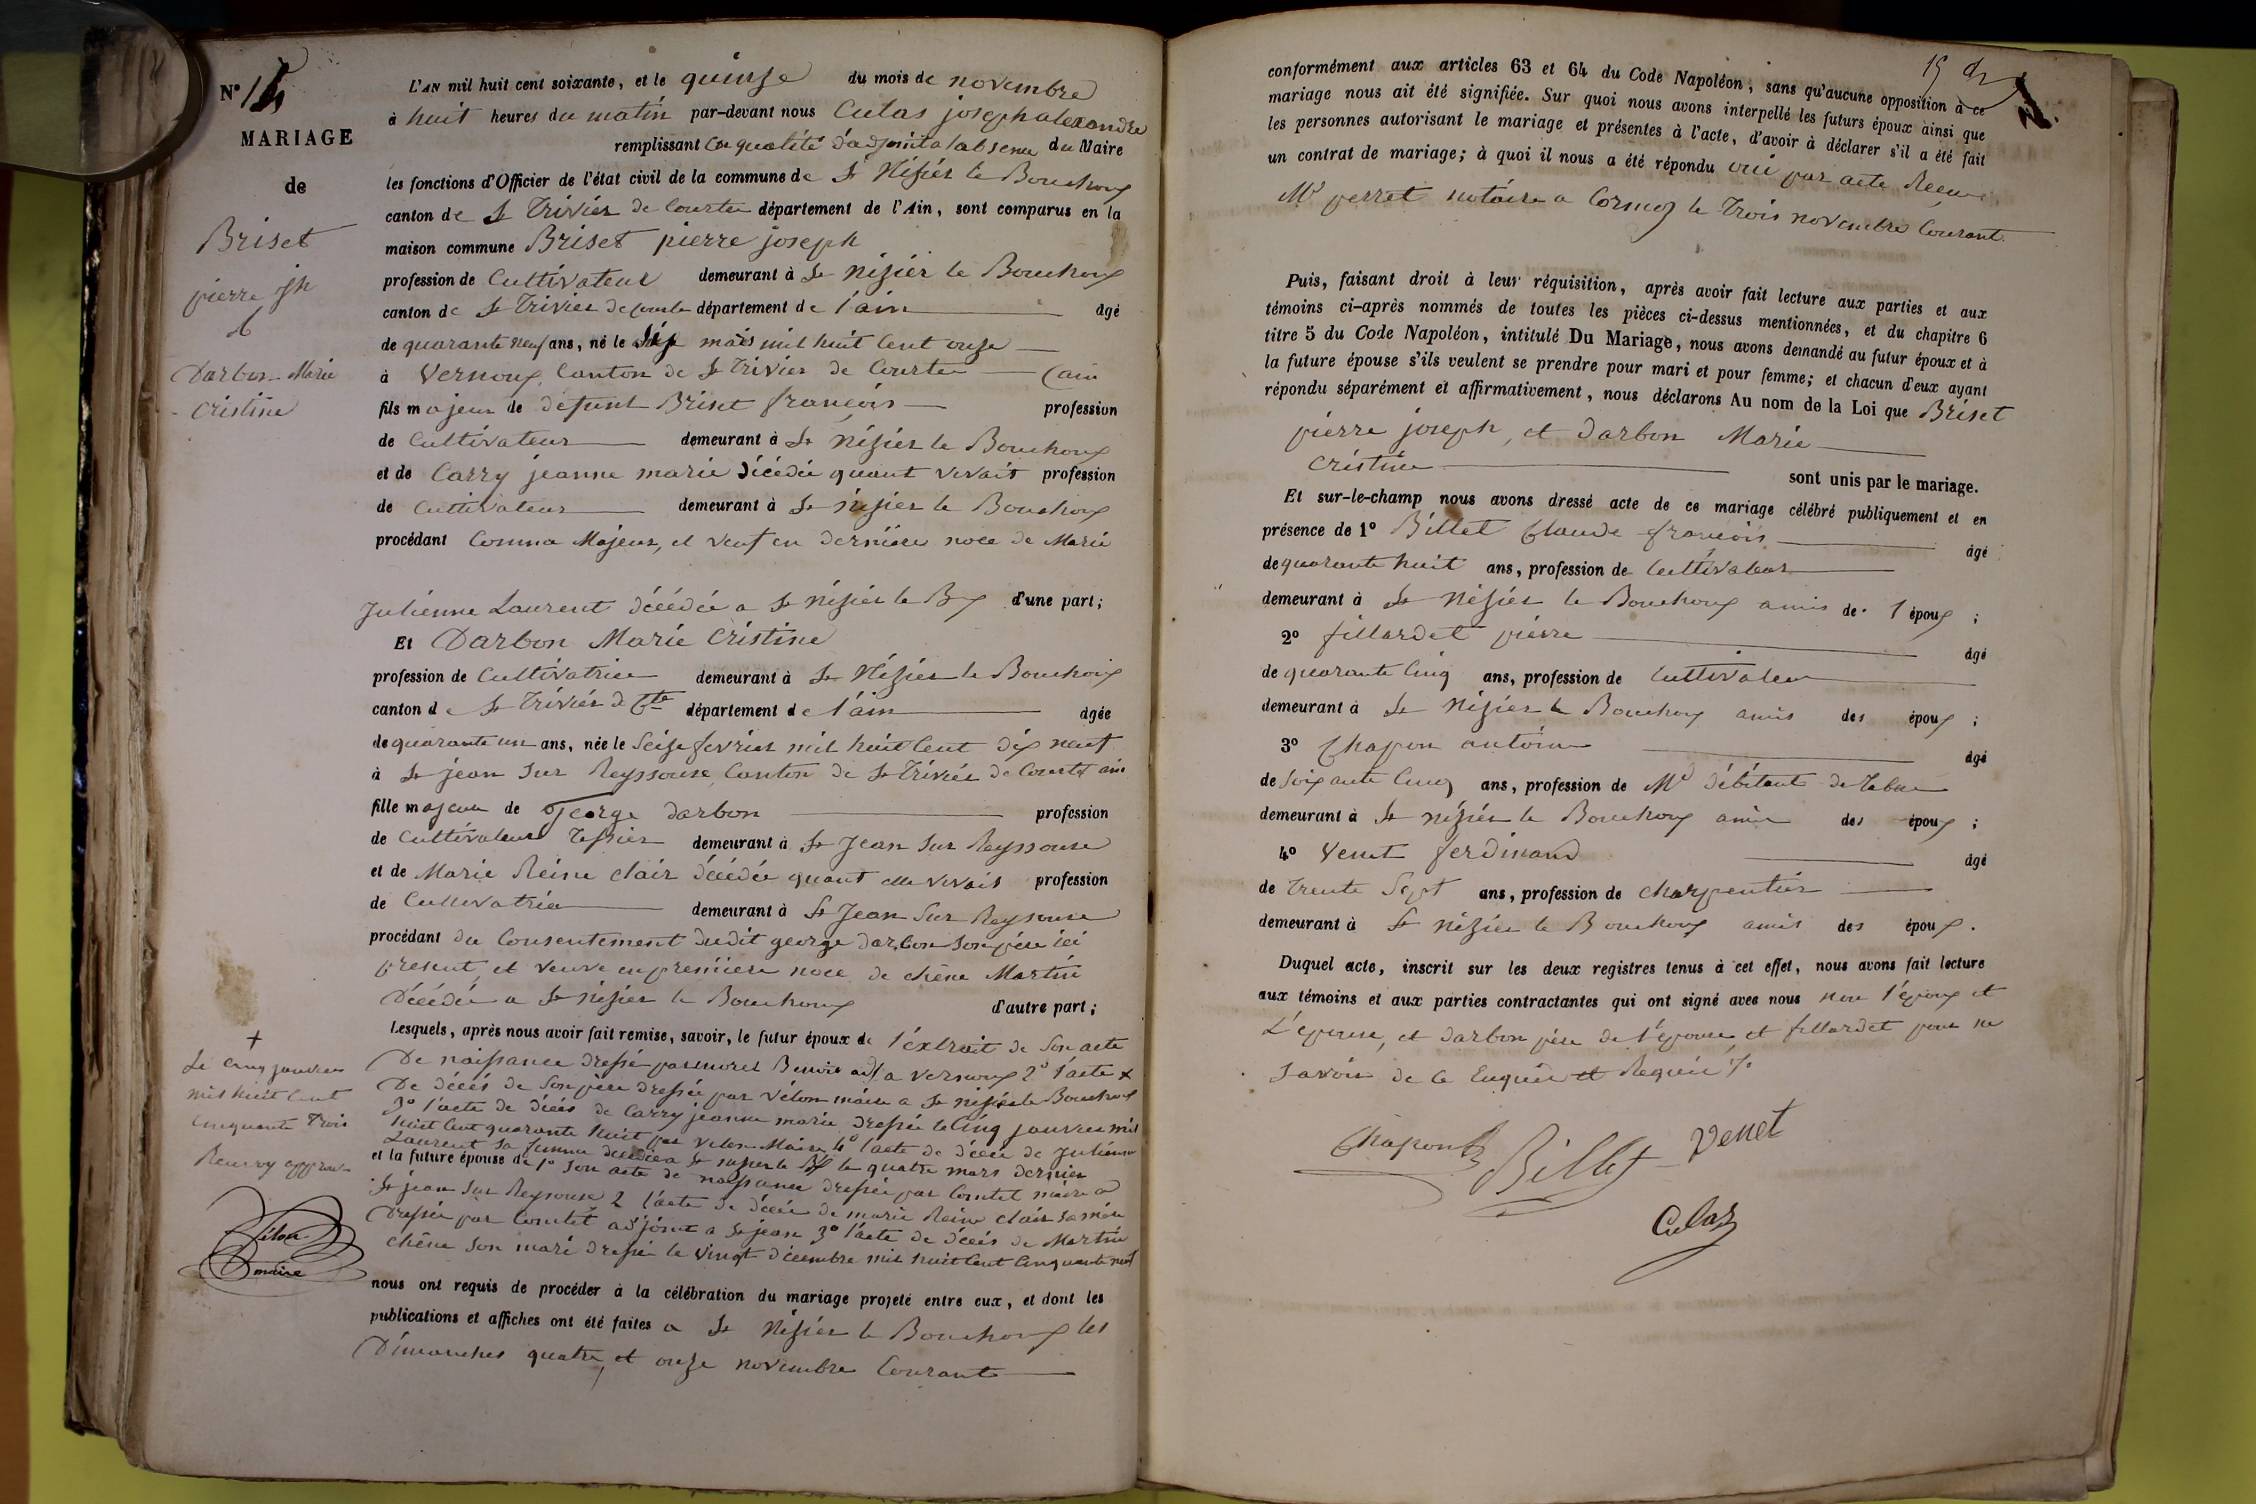 N° 14
MARIAGE
de
Briset
pierre jh
&
Darbon Marie
Cristine
L'AN mil huit cent soixante, et le quinze du mois de novembre
à huit heures du matin par-devant nous Culas joseph alexandre
remplissant en qualité d'adjoint a labsence du Maire
les fonctions d'Officier de l'état civil de la commune de St Nizier le Bouchoux
canton de St Trivier de Courtes département de l'Ain, sont comparus en la
maison commune Briset pierre joseph
profession de Cultivateur demeurant à St Nizier le Bouchoux
canton de St Trivier de Courtes département de l'ain âgé
de quarante neuf ans, né le mars mil huit Cent onze
à Vernoux, Canton de St Trivier de Courtes (ain
fils majeur de defunt Briset françois profession
de Cultivateur demeurant à St Nizier le Bouchoux
et de Carry jeanne marie décédée quant vivait profession
de Cultivateur demeurant à St nizier le Bouchoux
procédant Comme Majeur, et veuf en dernière noce de Marie
Julienne Laurent décédée a St Nizier le Bx d'une part;
Et Darbon Marie Cristine
profession de Cultivatrice demeurant à St Nizier le Bouchoux
canton de St Trivier de Cte département de l'ain âgée
de quarante un ans, née le Seize fevrier mil huit Cent dix neuf
à St jean sur Reyssouze Canton de St Trivier de Courtes ain
fille majeure de George Darbon profession
de Cultivateur Tessier demeurant à St Jean sur Reyssouze
et de Marie Reine Clair décédée quant elle vivait profession
de Cultivatrice demeurant à St Jean Sur Reyssouze
procédant du Consentement dudit george darbon son père ici
present, et veuve en première noce de chêne Martin
Décédé a St nizier le Bouchoux d'autre part;
Lesquels, après nous avoir fait remise, savoir, le futur époux de l'extrait de Son acte
De naissance dressé par morel Benoit adj a Vernoux 2° l'acte x
De décés de Son père dressée par Vélon maire a St nizier le Bouchoux
3° l'acte de décés de Carry jeanne marie dressée le Cinq janvier mil
huit Cent quarante huit par Velon Maire 4° l'acte de décés de Julienne
Laurent Sa femme decédée a St nizier le Bx le quatre mars dernier
et la future épouse de 1° Son acte de naissance dressée par Comtet maire a
St jean sur Reyssouze 2 l'acte de décés de marie Reine Clair sa mère
Dressée par Comtet adjoint a St jean 3° l'acte de décés de Martin
Chêne Son mari dressée le Vingt décembre mil huit Cent Cinquante neuf
+
Le Cinq janvier
mil huit Cent
Cinquante Trois
Renvoy approuvé
Velon
maire
nous ont requis de procéder à la célébration du mariage projeté entre eux, et dont les
publications et affiches ont été faites a St Nizier le Bouchoux les
Dimanches quatre, et onze novembre Courant
15
conformément aux articles 63 et 64 du Code Napoléon, sans qu'aucune opposition à ce
mariage nous ait été signifiée. Sur quoi nous avons interpellé les futurs époux ainsi que
les personnes autorisant le mariage et présentes à l'acte, d'avoir à déclarer s'il a été fait
un contrat de mariage; à quoi il nous a été répondu oui par acte Reçu
Me perret notaire a Cormoz le Trois novembre Courant.
Puis, faisant droit à leur réquisition, après avoir fait lecture aux parties et aux
témoins ci-après nommés de toutes les pièces ci-dessus mentionnées, et du chapitre 6
titre 5 du Code Napoléon, intitulé Du Mariage, nous avons demandé au futur époux et à
la future épouse s'ils veulent se prendre pour mari et pour femme; et chacun d'eux ayant
répondu séparément et affirmativement, nous déclarons Au nom de la Loi que Briset
pierre joseph, et darbon Marie
Cristine sont unis par le mariage.
Et sur-le-champ nous avons dressé acte de ce mariage célébré publiquement et en
présence de 1° Billet Claude françois âgé
de quarante huit ans, profession de Cultivateur
demeurant à St Nizier le Bouchoux amis de l'époux ;
2° fillardet pierre âgé
de quarante Cinq ans, profession de Cultivateur
demeurant à St Nizier le Bouchoux amis des époux ;
3° Chapon antoine âgé
de Soixante Cinq ans, profession de Md débitant de Tabac
demeurant à St nizier le Bouchoux amis des époux ;
4° Venet ferdinand âgé
de trente Sept ans, profession de charpentier
demeurant à St nizier le Bouchoux amis des époux.
Duquel acte, inscrit sur les deux registres tenus à cet effet, nous avons fait lecture
aux témoins et aux parties contractantes qui ont signé avec nous non l'époux et
L'épouse, et darbon père de l'épouse, et fillardet pour ne
Savoir de Ce Enquis et Requis
Chapon Billet Venet
Culas